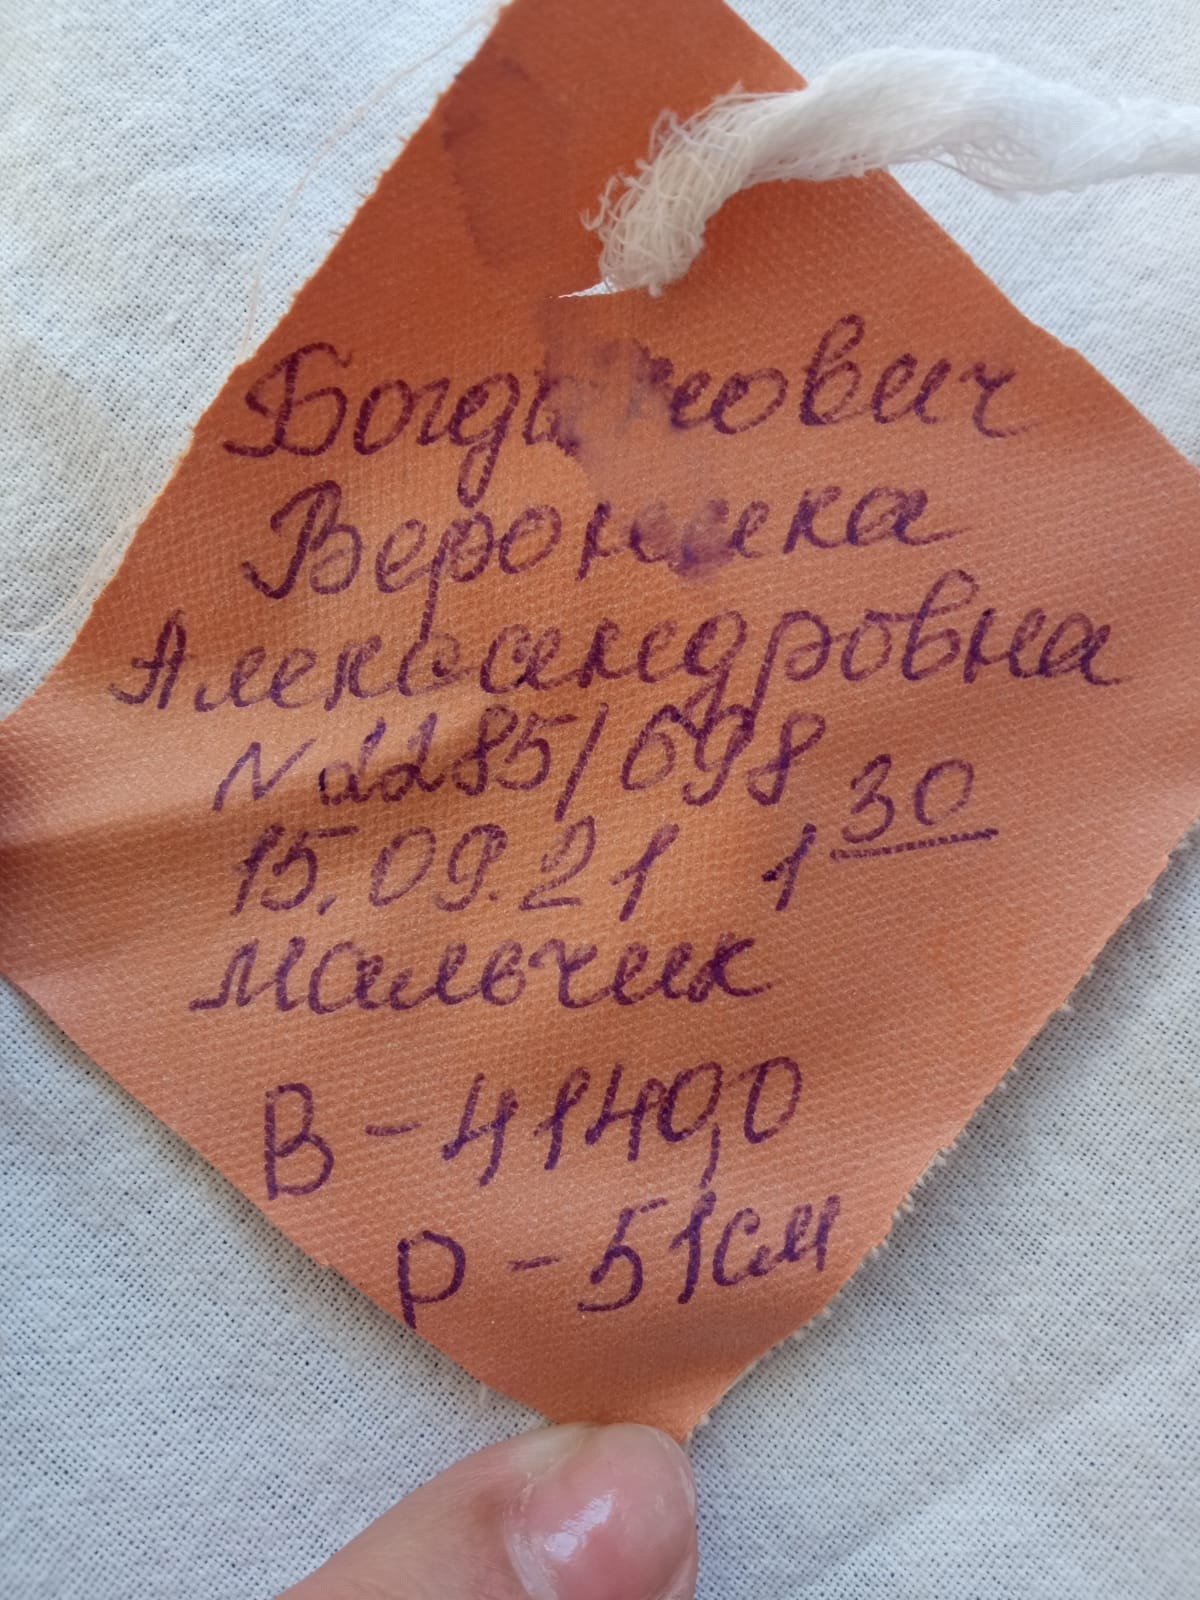 Богданович
Вероника
Александровна
N 2285/698
15.09.21 1 30
Мальчик
В - 4140,0
Р - 51 см